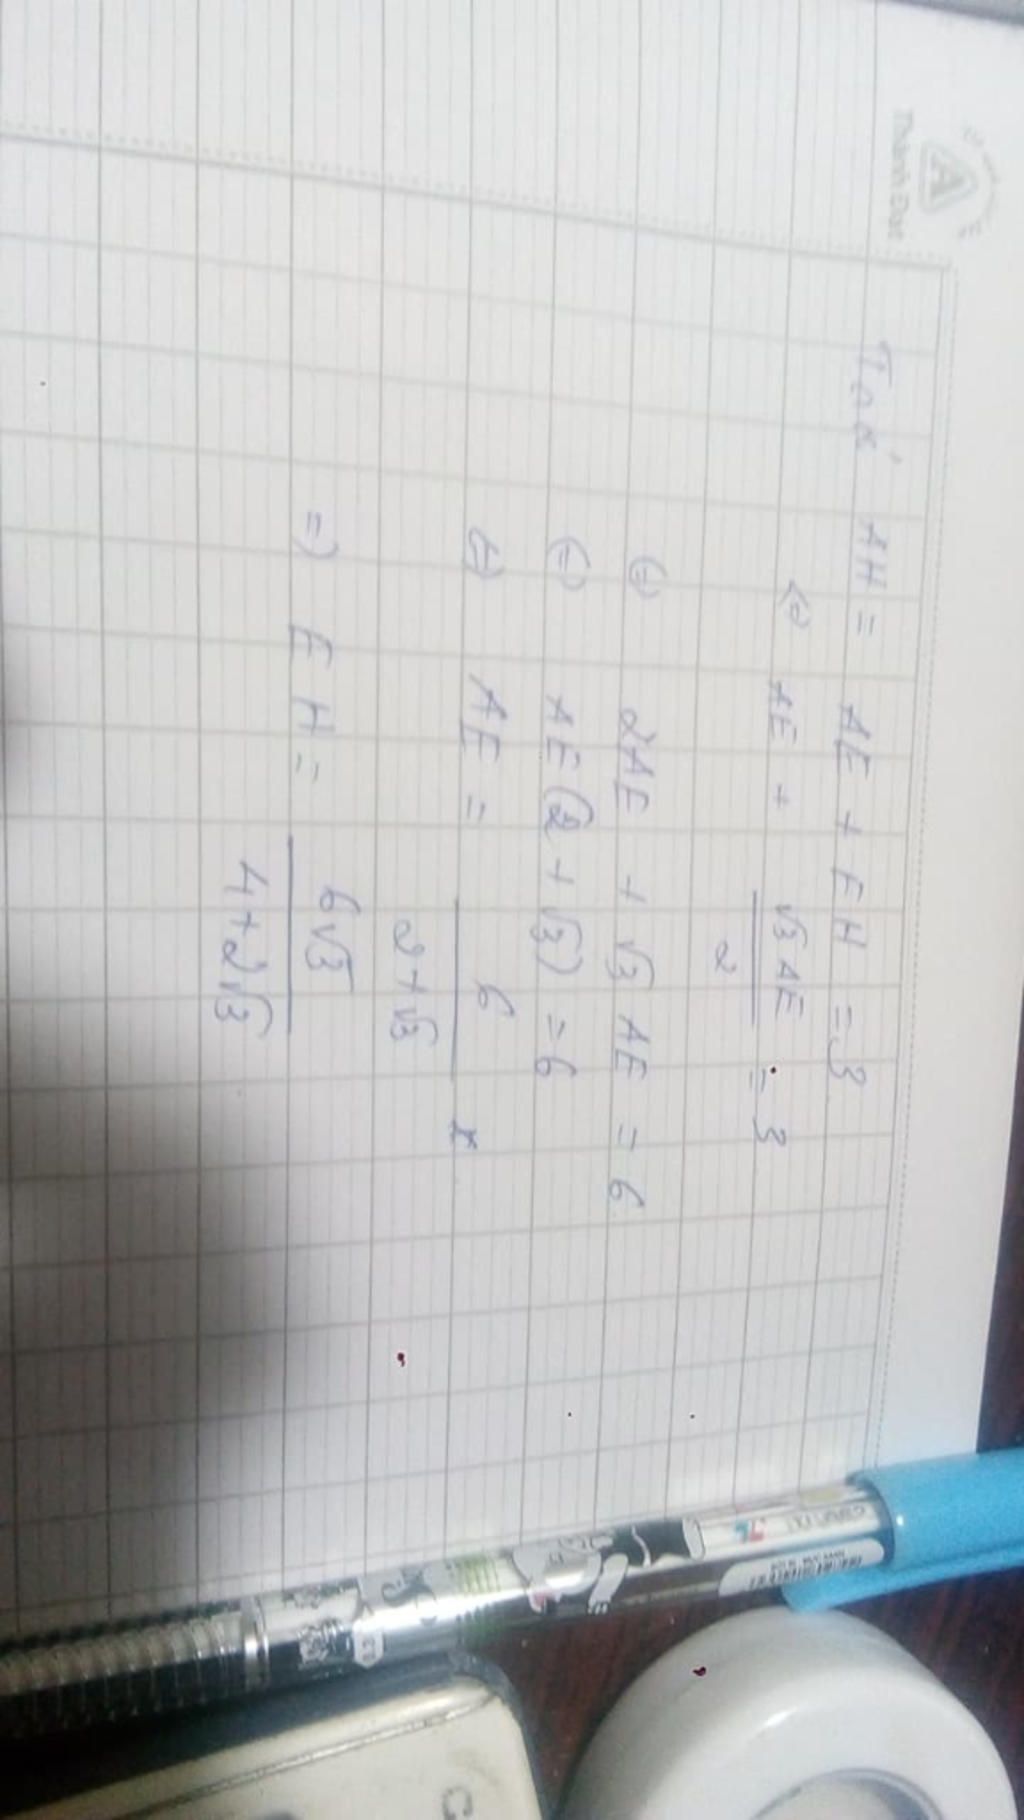 Thành Đạt
Ta có AH = AE + EH = 3
<=> AE + √3 AE / 2 = 3
<=> 2AE + √3 AE = 6
<=> AE (2 + √3) = 6
<=> AE = 6 / 2 + √3
=> EH = 6√3 / 4 + 2√3